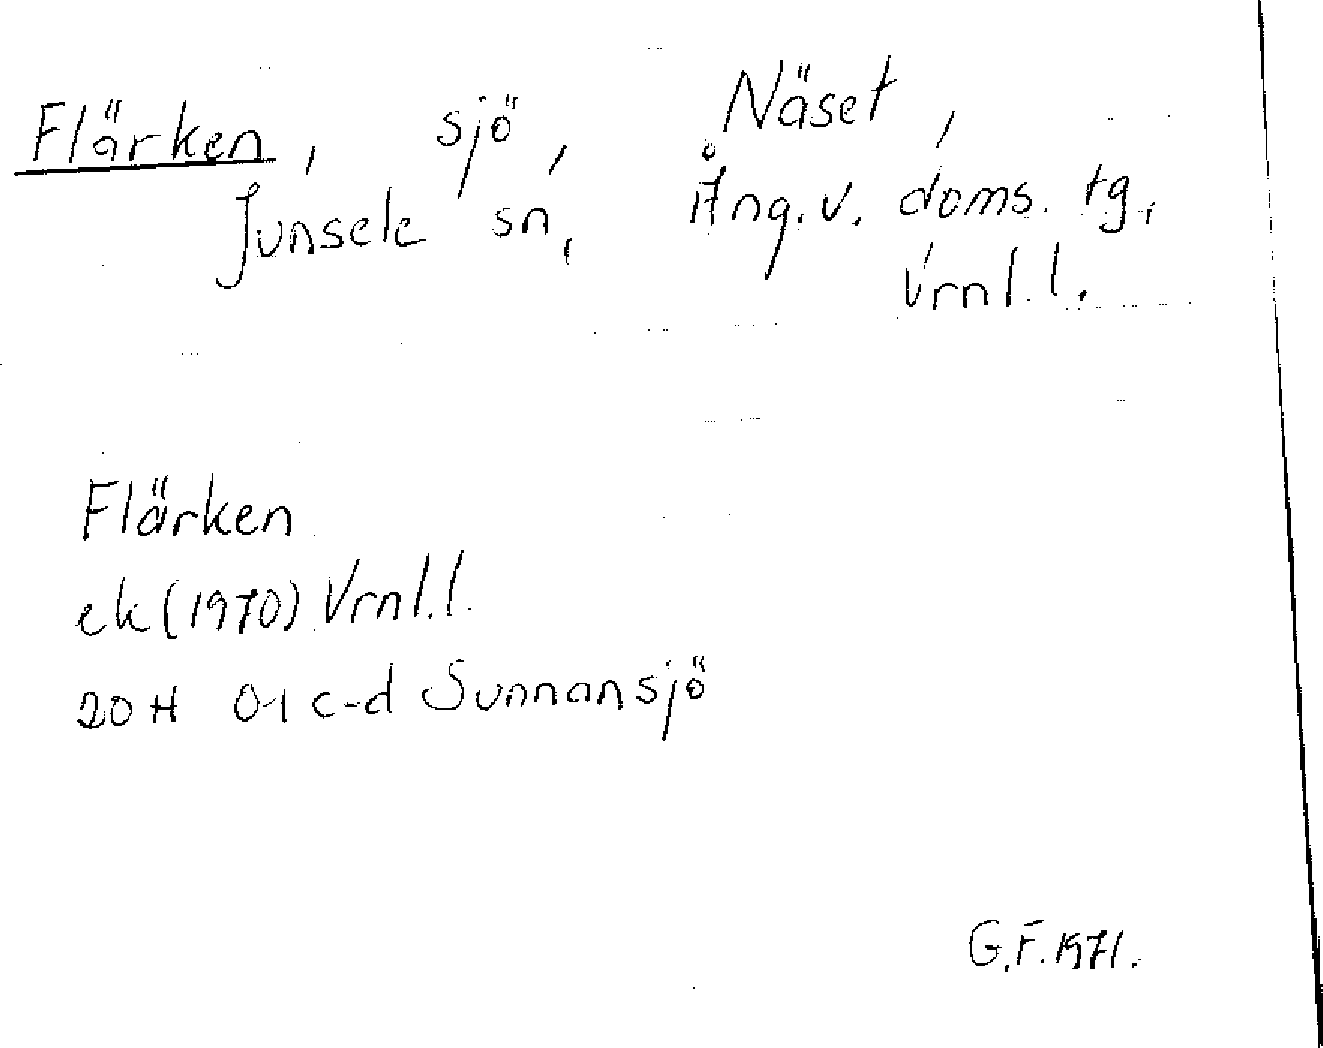 Flärken, sjö, Näset,
Junsele sn, Ång.v. doms. tg,
Vrnl.l.
Flärken
ek (1970) Vrnl.l.
20H 01 c-d Sunnansjö
G.F. 1971.